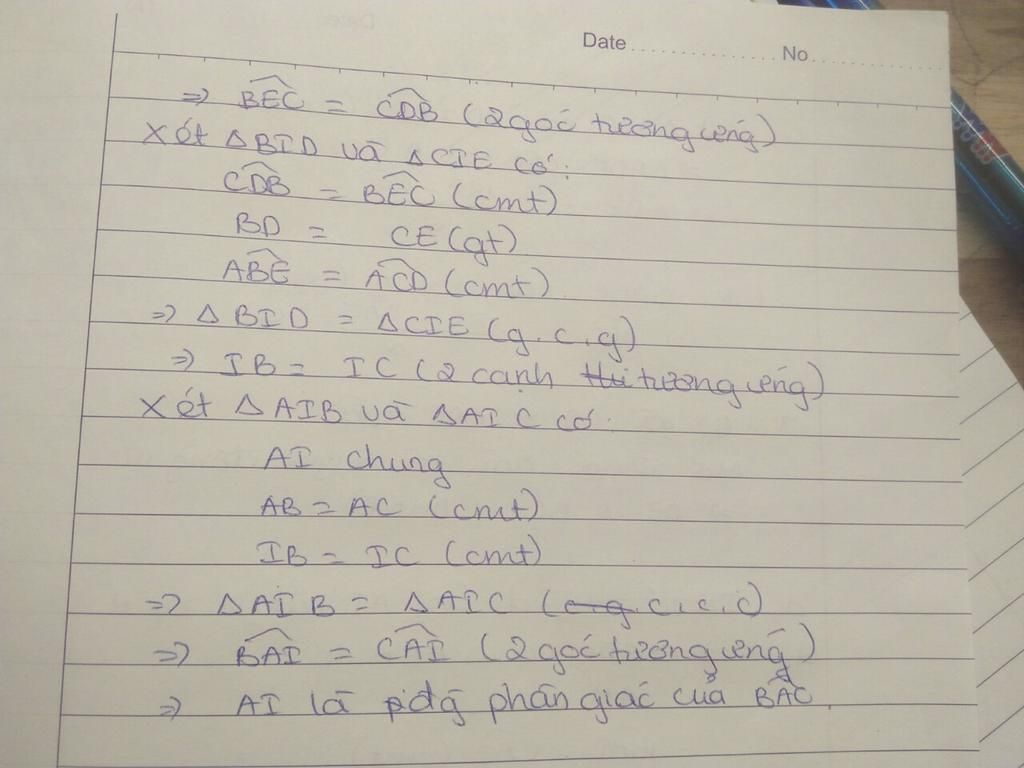 Date.................. No..................
=> BÊC = CD̂B (2 góc tương ứng)
Xét ΔBID và ΔCIE có:
CD̂B = BÊC (cmt)
BD = CE (gt)
AB̂E = AĈD (cmt)
=> ΔBID = ΔCIE (g.c.g)
=> IB = IC (2 cạnh tương ứng)
Xét ΔAIB và ΔAIC có:
AI chung
AB = AC (cmt)
IB = IC (cmt)
=> ΔAIB = ΔAIC (c.c.c)
=> BÂI = CÂI (2 góc tương ứng)
=> AI là đg phân giác của BÂC.